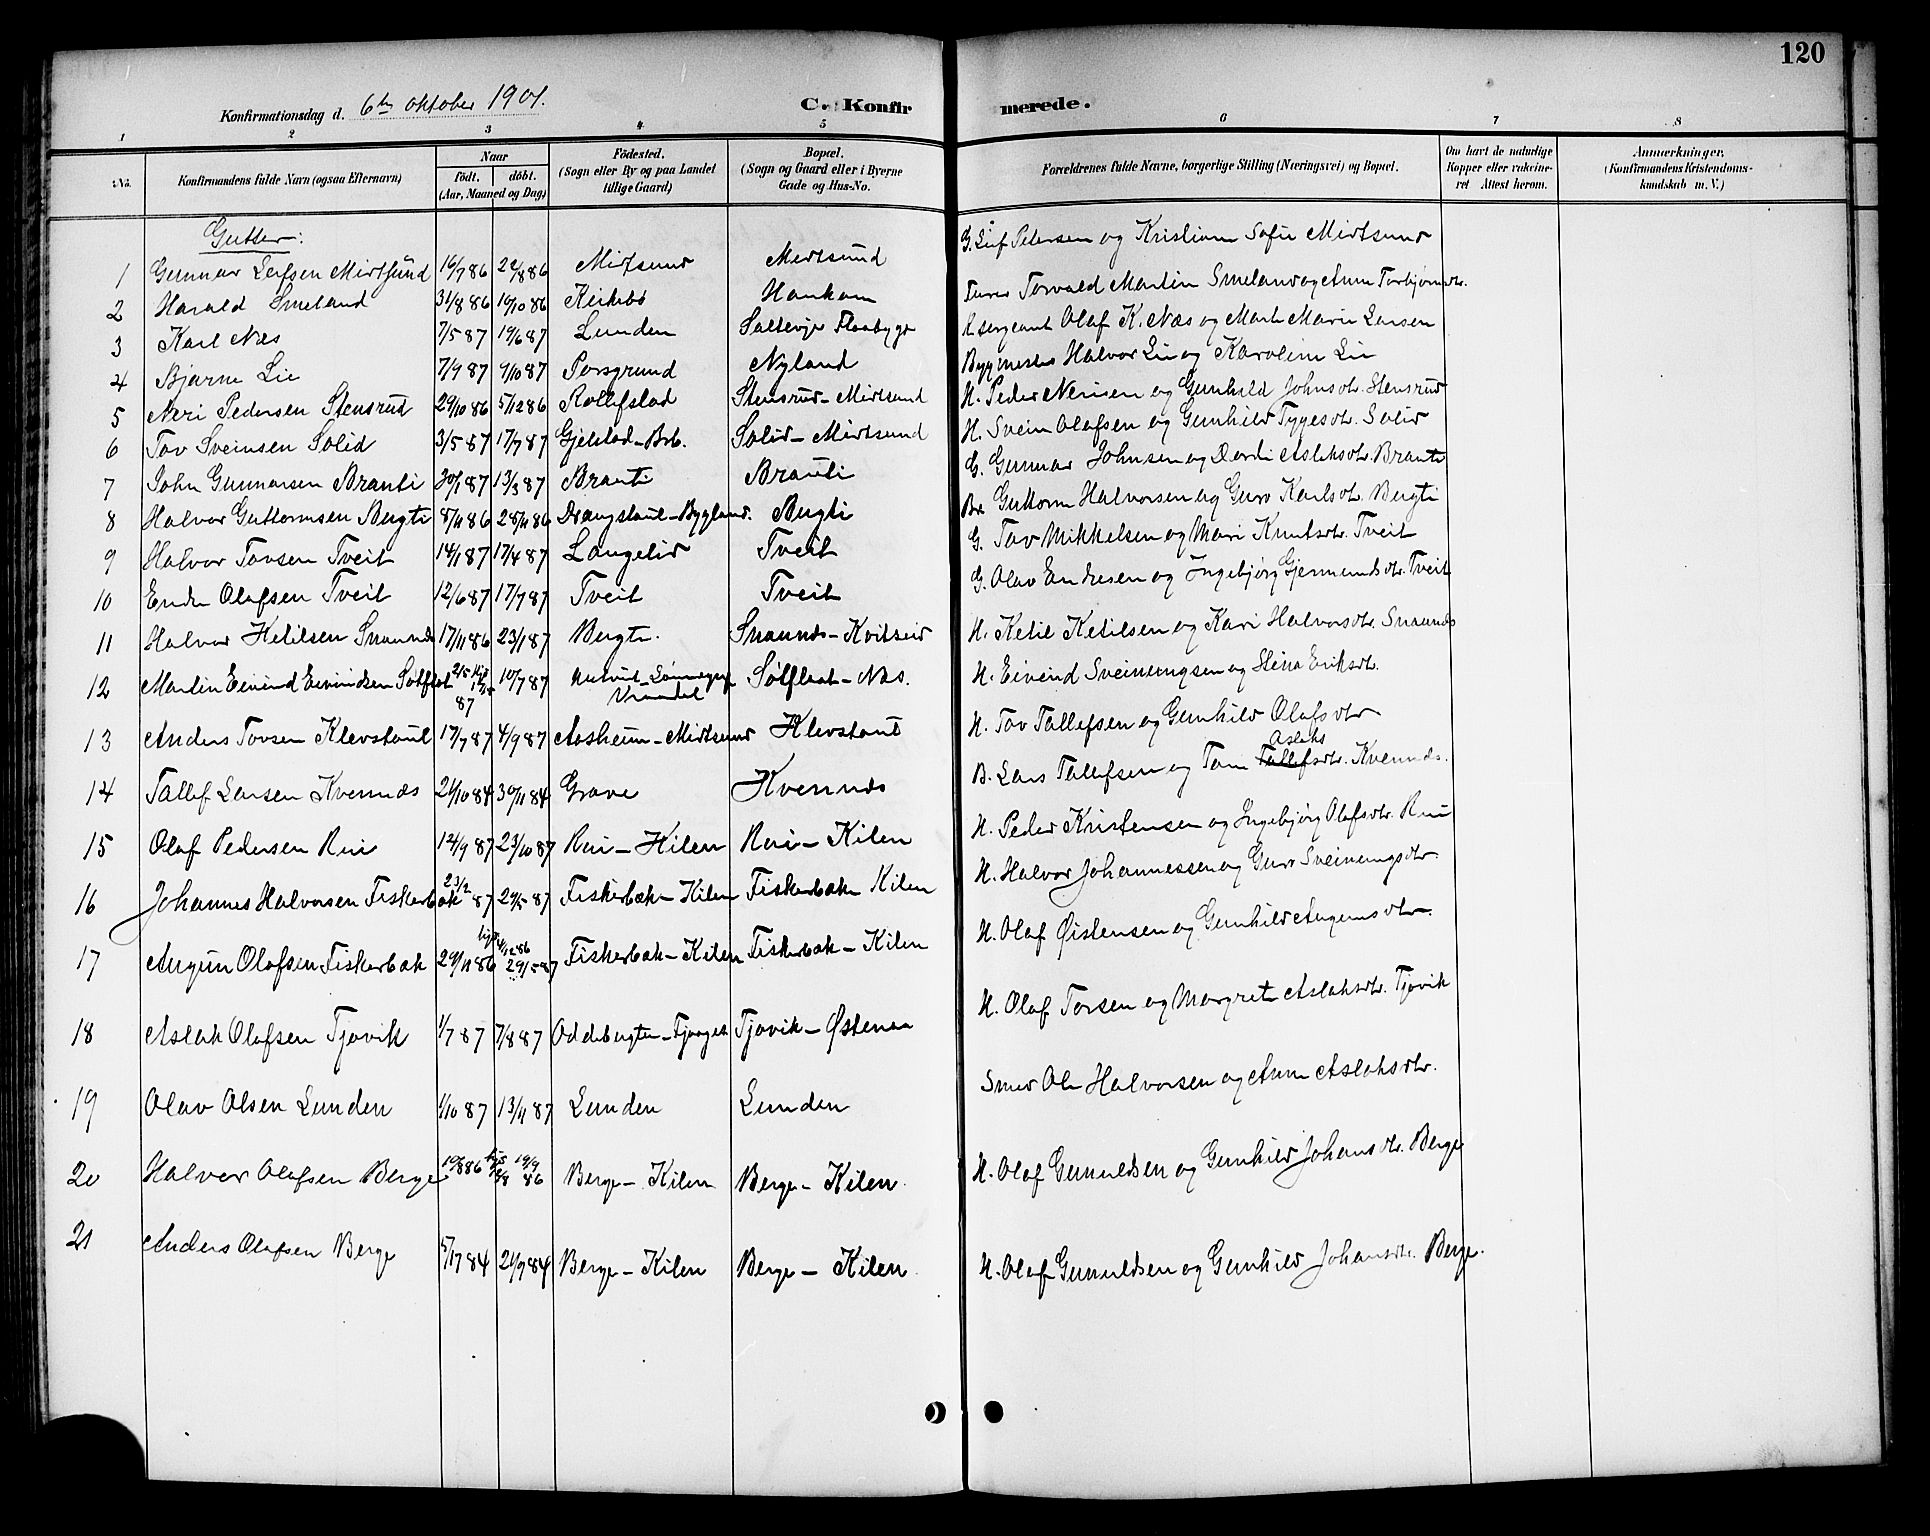 120
Konfirmationsdag d. 6te oktober 1901.
C. Konfir merede.
1 2 3 4 5 6 7 8
No.
Konfirmandens fulde Navn (ogsaa Efternavn)
Naar
Födt. döbt.
(Aar, Maaned og Dag)
Födested.
(Sogn eller By og paa Landet
tillige Gaard)
Bopæl.
(Sogn og Gaard eller i Byerne
Gade og Hus-No.
Forældrenes fulde Navne, borgerlige Stilling (Næringsvei) og Bopæl.
Om havt de naturlige
Kopper eller vakcine-
ret Attest herom.
Anmærkninger,
(Konfirmandens Kristendoms-
kundskab m. V.)
Gutter:
1 Gunnar Leifsen Mirtsund 16/7 86 22/8 86 Mirtsund Mirtsund G. Leif Petersen og Kristiane Sofie Mirtsund
2 Harald Smeland 31/8 86 10/10 86 Kirkebø Haukom Torvald Martin Smeland og Anne Torbjørnsdtr.
3 Karl Næs 7/5 87 19/6 87 Lunden Saltevje Flaabygd Olaf K. Næs og Marte Marie Larsen
4 Bjarne Lie 7/9 87 9/10 87 Porsgrund Nyland Bygmester Halvor Lie og Karoline Lie
5 Neri Pedersen Stensrud 29/10 86 5/12 86 Rollefstad Stensrud - Mirtsund H. Peder Nerisen og Gunhild Johnsdtr. Stensrud
6 Tov Sveinsen Solid 3/5 87 17/7 87 Gjelstad - Bøb. Solid - Mirtsund H. Svein Olafsen og Gunhild Tygesdtr. Solid
7 John Gunnarsen Brauti 30/1 87 13/3 87 Brauti Brauti G. Gunnar Johnsen og Dordi Aslaksdtr. Brauti
8 Halvor Guttormsen Bergti 8/11 86 28/11 86 Drangstaul - Bygland. Bergti Br. Guttorm Halvorsen og Guro Karlsdtr. Bergti
9 Halvor Tovsen Tveit 14/1 87 17/4 87 Langelid Tveit G. Tov Mikkelsen og Mari Knutsdtr. Tveit
10 Endre Olafsen Tveit 12/6 87 17/7 87 Tveit Tveit G. Olav Endresen og Ingebjørg Gjermundsdtr. Tveit
11 Halvor Ketilsen Snaunds 17/11 86 23/1 87 Bergte. Snaunds - Kvitseid H. Ketil Ketilsen og Kari Halvorsdtr. Snaunds
12 Martin Eivind Eivindsen Sølflot 87 10/7 87 Vraadal Sølflaat - Næs. H. Eivend Sveinungsen og Stina Eriksdtr.
13 Anders Tovsen Klevstaul 17/7 87 4/9 87 Aasheim - Mirtsund Klevstaul H. Tov Tallefsen og Gunhild Olafsdtr
14 Tallef Larsen Kvennds 21/10 84 30/11 84 Grave Kvennds B. Lars Tallefsen og Tone Tallefsdtr. Aslaks Kvennds.
15 Olaf Pedersen Rui 12/9 87 23/10 87 Rui - Kilen Rui - Kilen H. Peder Kristensen og Ingebjørg Olafsdtr. Rui
16 Johannes Halvorsen Fiskerbæk 23/2 87 29/5 87 Fiskerbæk - Kilen Fiskerbæk - Kilen H. Halvor Johannessen og Guro Sveinungsdtr.
17 Augun Olafsen Fiskerbæk 29/11 86 hjd. 4/12 86 29/5 87 Fiskerbæk - Kilen Fiskerbæk - Kilen H. Olaf Øistensen og Gunhild Augunsdtr.
18 Aslak Olafsen Tjovik 1/7 87 7/8 87 Oddebergten - Fjaagesk Tjovik - Østenaa H. Olaf Torsen og Margrete Aslaksdtr. Tjovik
19 Olav Olsen Lunden 1/10 87 13/11 87 Lunden Lunden Smed Ole Halvorsen og Anne Aslaksdtr.
20 Halvor Olafsen Berge 10/8 86 19/9 86 Berge - Kilen Berge - Kilen. H. Olaf Gunuldsen og Gunhild Johansdtr. Berge
21 Anders Olafsen Berge 84 21/9 84 Berge - Kilen Berge - Kilen H. Olaf Gunuldsen og Gunhild Johansdtr. Berge.